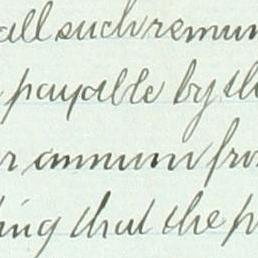 all such remun
payable by the
r annum fro
ing that the p